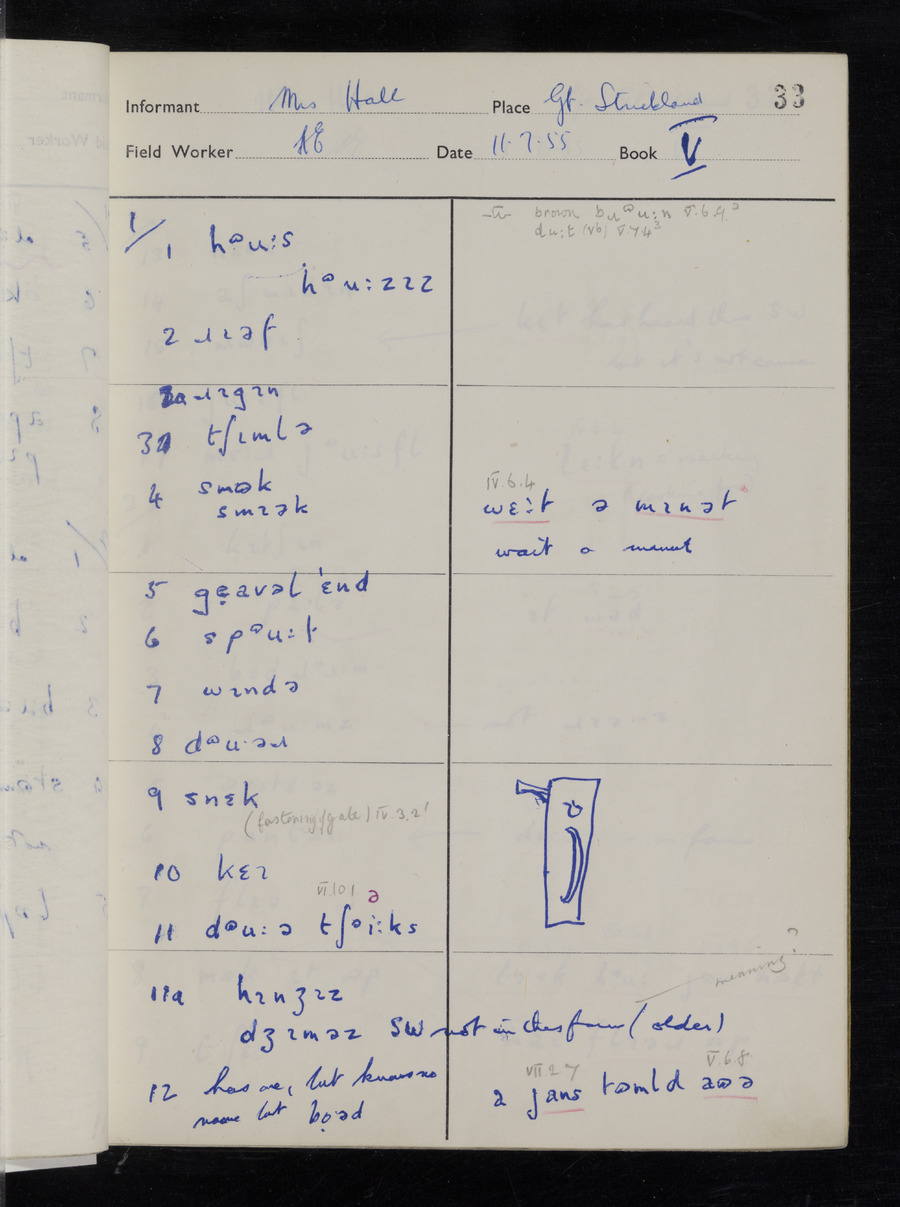 Informant Mrs Hall Place Gt. Strickland 33
Field Worker AE Date 11.7.55 Book V
1/ 1 hᶷu:s
hᶷu:zɪz
2 ɹɪəf
2a ɹɪgɪn
3 tʃɪmlə
4 smʊək
smɪək
5 geavəl 'ɛnd
6 spᶷu:t
7 wɪndə
8 dᶷu·əɹ
9 snɛk
(fastening of gate) IV.3.2
10 kɛɪ
VI.10.1 ə
11 dᶷu:ə tʃᵊi:ks
11a hɪnʒɪz
dʒɪməz SW not in this form (older)
12 has one, but knows no
name but bo:əd
brown V.6.9
V.7.4
IV.6.4
wɛ:t ə mɪnət
wait a minute
meaning?
VII.2.7 V.6.8
ə jans tʊmld aʊə